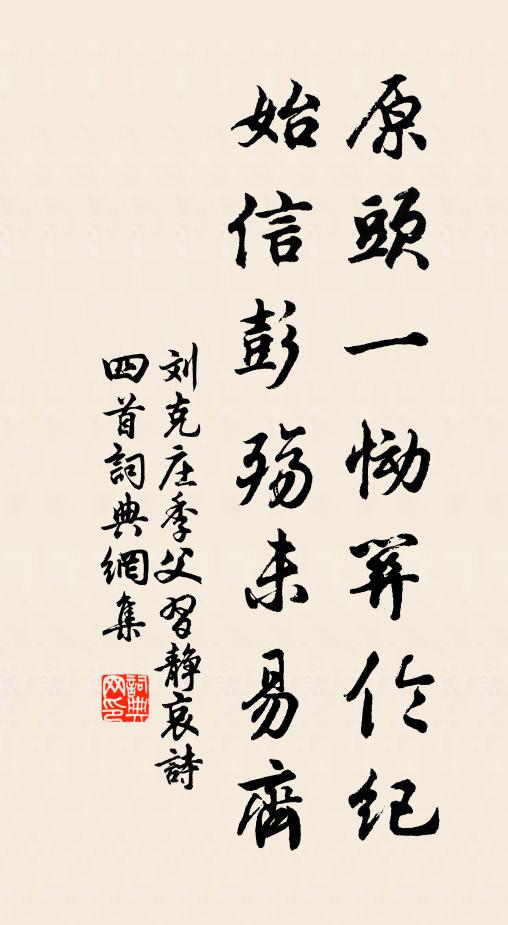 原頭一慟笄伶紀
始信彭殤未易齊
刘克庄季父習静哀詩
四首詞典網集
詞典网印